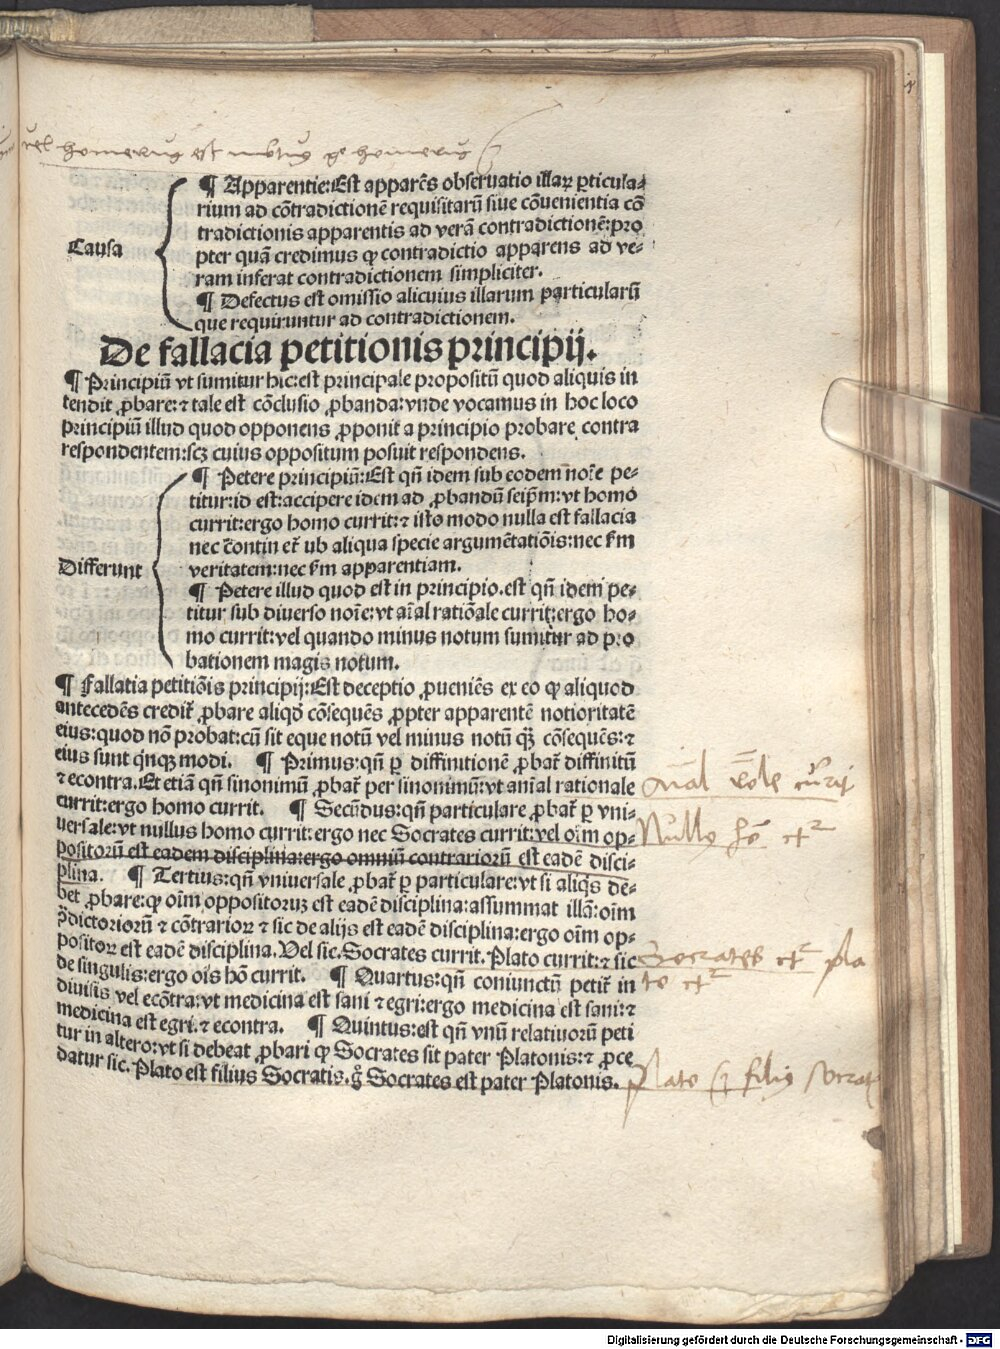 vel homerus est mortuus ergo homerus
¶ Apparentie: Est apparēs obseruatio illaꝝ ꝑticula⸗
rium ad cōtradictionē requisitarū siue cōuenientia cō
tradictionis apparentis ad verā contradictionē: pro
pter quā credimus ꝙ contradictio apparens ad ve⸗
Causa
ram inferat contradictionem simpliciter.
¶ Defectus est omissio alicuius illarum particularū
que requiruntur ad contradictionem.
De fallacia petitionis principij.
¶ Principiū vt sumitur hic: est principale propositū quod aliquis in
tendit ꝓbare: ⁊ tale est cōclusio ꝓbanda: vnde vocamus in hoc loco
principiū illud quod opponens ꝓponit a principio probare contra
respondentem: scꝫ cuius oppositum posuit respondens.
¶ Petere principiū: Est qñ idem sub eodem noīe pe⸗
titur: id est: accipere idem ad ꝓbandū seip̄m: vt homo
currit: ergo homo currit: ⁊ isto modo nulla est fallacia
nec contin et̄ ub aliqua specie argumētatiōis: nec ẜm
Differunt
veritatem: nec ẜm apparentiam.
¶ Petere illud quod est in principio. est qñ idem pe⸗
titur sub diuerso noīe: vt aīal ratiōale currit: ergo ho⸗
mo currit: vel quando minus notum sumitur ad pro
bationem magis notum.
¶ Fallatia petitiōis principij: Est deceptio ꝓueniēs ex eo ꝙ aliquod
antecedēs credit̄ ꝓbare aliqd̄ cōsequēs ꝓpter apparentē notioritatē
eius: quod nō probat: cū sit eque notū vel minus notū qꝫ̄ cōsequēs: ⁊
eius sunt qnqꝫ modi. ¶ Primus: qñ ꝑ diffinitionē ꝓbat̄ diffinitū
⁊ econtra. Et etiā qñ sinonimū ꝓbat̄ per sinonimū: vt anīal rationale
currit: ergo homo currit. ¶ Secūdus: qñ particulare ꝓbat̄ ꝑ vni⸗
uersale: vt nullus homo currit: ergo nec Socrates currit: vel oīm op⸗
positorū est eadem disciplina: ergo omniū contrariorū est eadē disci⸗
plina. ¶ Tertius: qñ vniuersale ꝓbat̄ ꝑ particulare: vt si aliqs de⸗
bet ꝓbare: ꝙ oīm oppositoruꝫ est eadē disciplina: assummat illā: oīm
p̄dictoriorū ⁊ cōtrarioꝝ ⁊ sic de alijs est eadē disciplina: ergo oīm op⸗
positoꝝ est eadē disciplina. Vel sic. Socrates currit. Plato currit: ⁊ sic
de singulis: ergo oīs hō currit. ¶ Quartus: qñ coniunctū petit̄ in
diuisis vel ecōtra: vt medicina est sani ⁊ egri: ergo medicina est sani: ⁊
medicina est egri. ⁊ econtra. ¶ Quintus: est qñ vnū relatiuorū peti
tur in altero: vt si debeat ꝓbari ꝙ Socrates sit pater Platonis: ⁊ ꝓce
datur sic. Plato est filius Socratis. gͦ Socrates est pater Platonis.
aīal rōle currit
Nullus hō
Socrates pla
to
plato est filius socrat
Digitalisierung gefördert durch die Deutsche Forschungsgemeinschaft - DFG